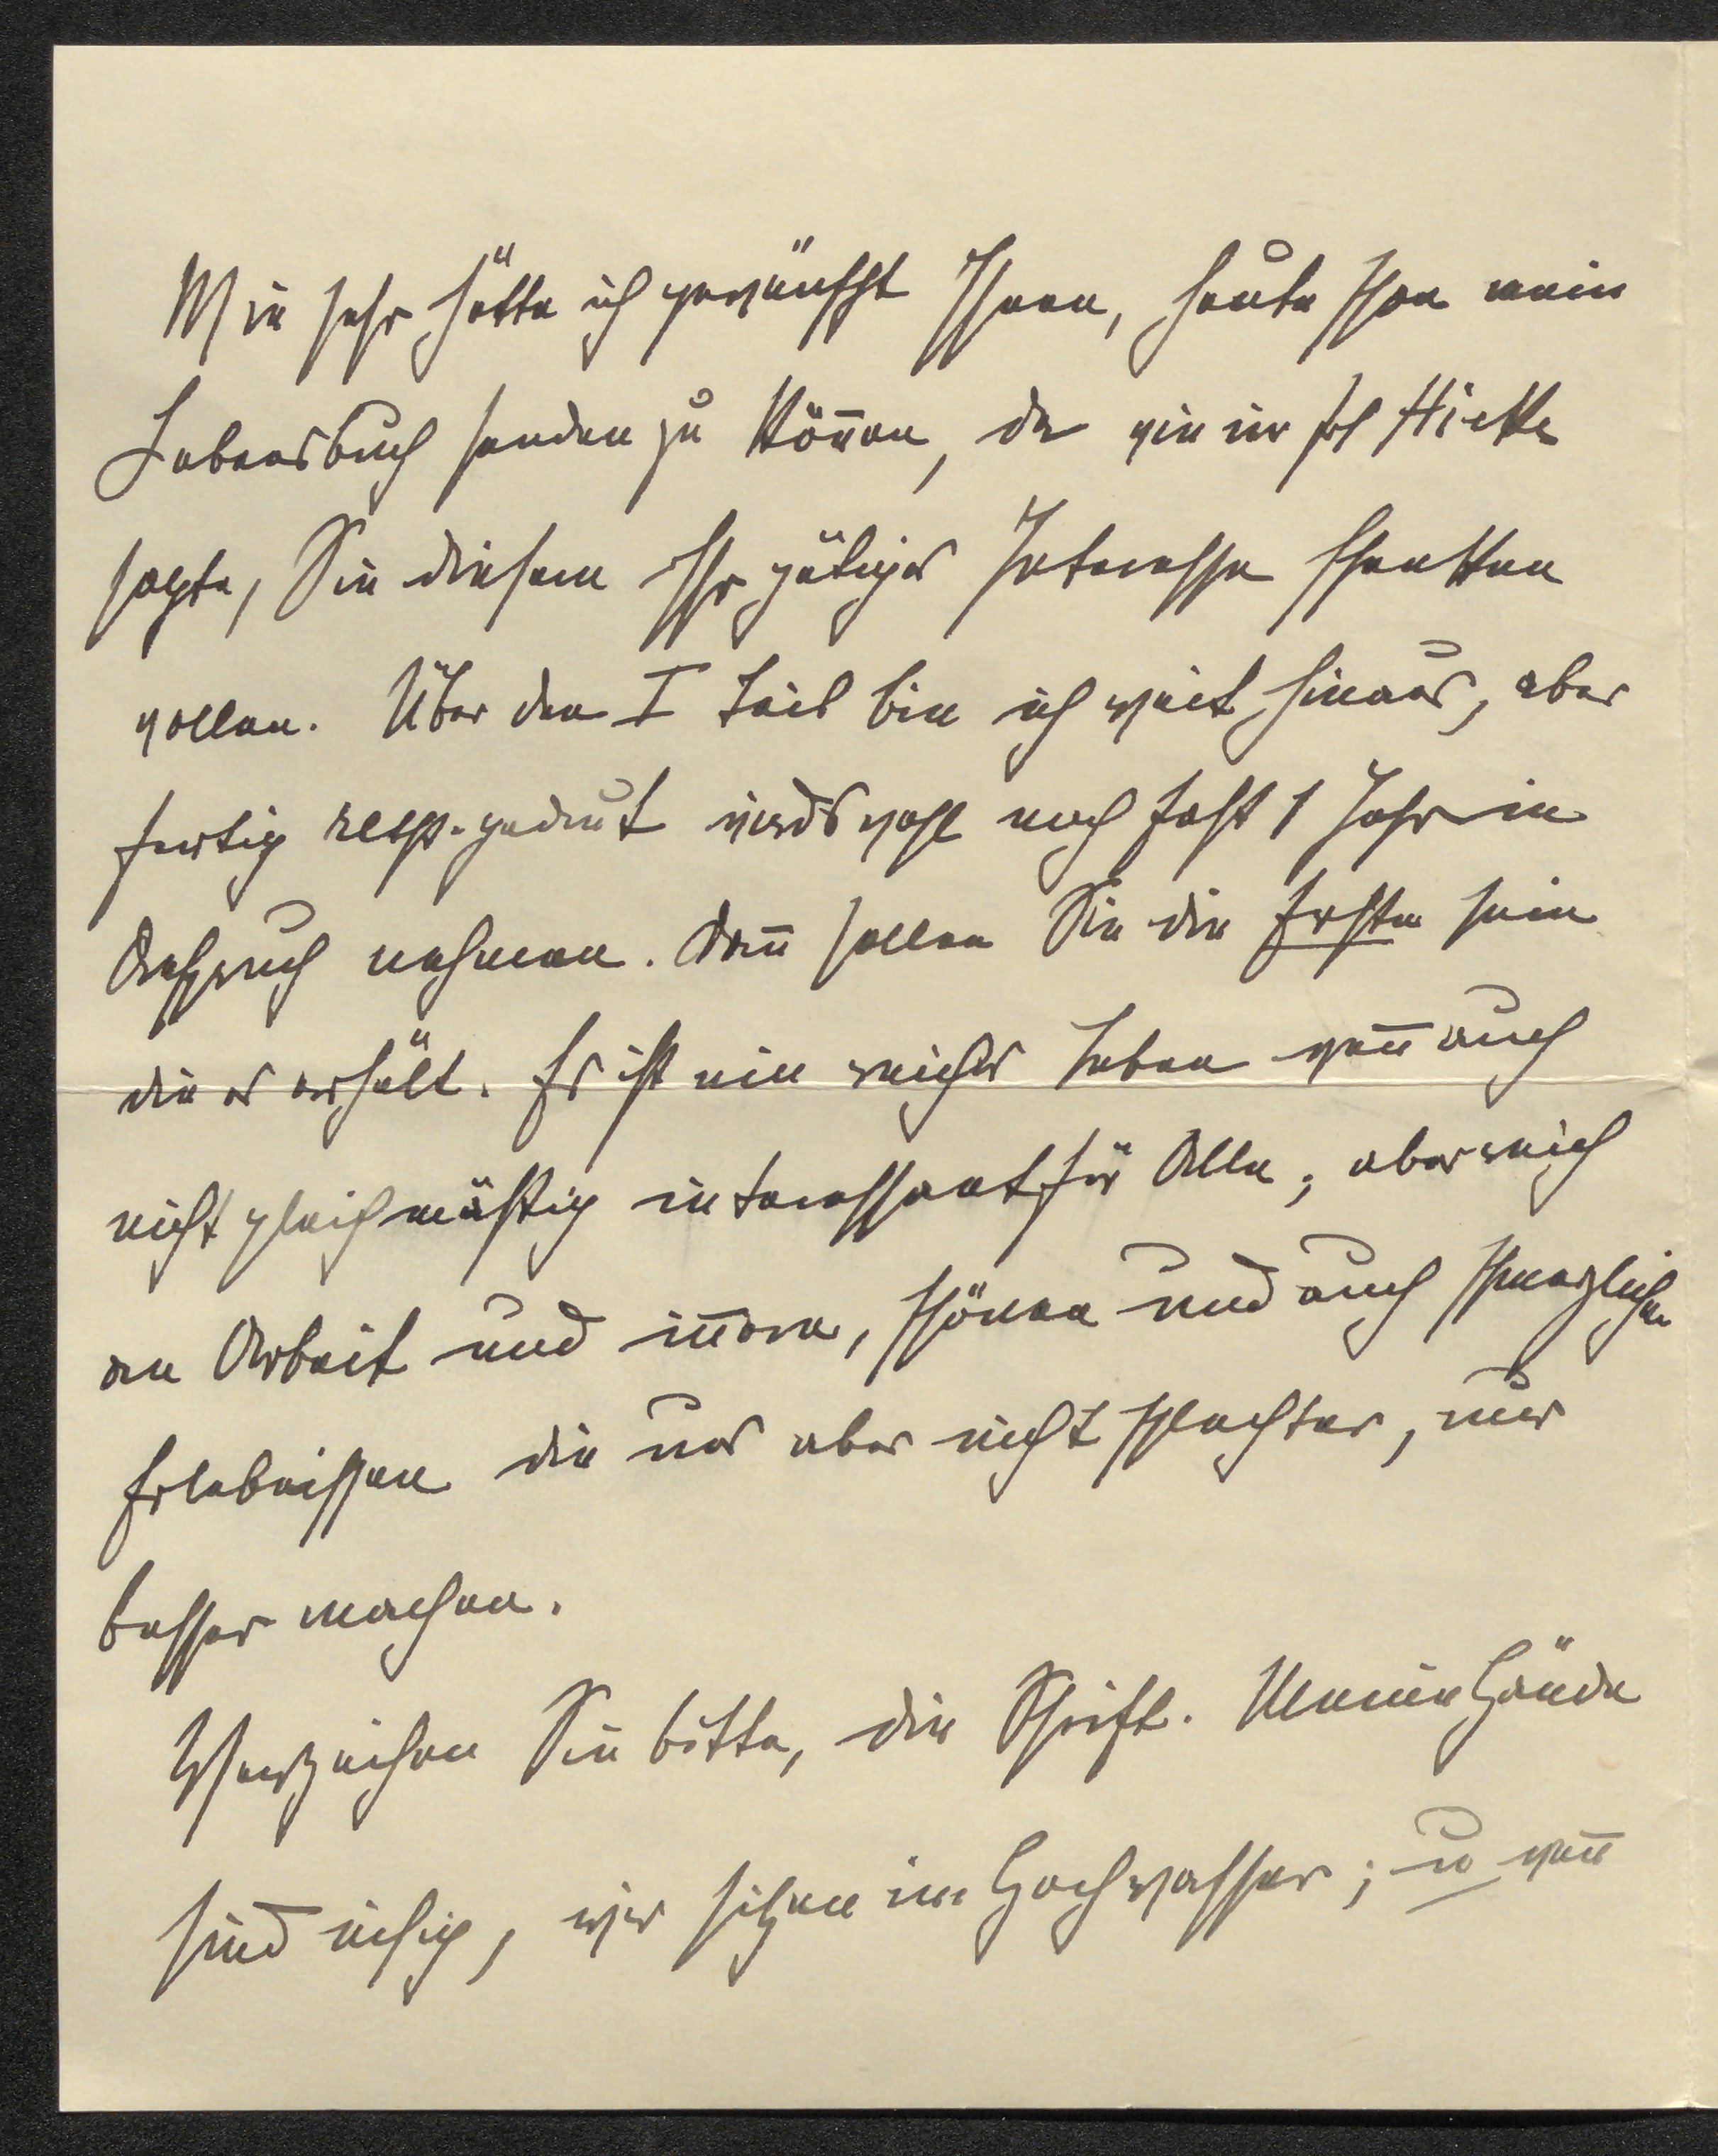 Wie sehr hätte ich gewünscht Ihnen, heute schon mein
Lebensbuch senden zu können, da wie mir
sagte, Sie diesem Ihr gütiges Interesse schenken
wollen. Über den I Teil bin ich weit hinaus, aber
fertig resp. gedruckt wohl noch fast 1 Jahr in
Anspruch nehmen. Dan̄ sollen Sie die Erste sein
die es erhält. Es ist ein reiches Leben wen̄ auch
nicht gleichmäßig interessant für Alle, aber reich
an Arbeit und in̄eren, schönen und auch schmerzlichen
Erlebnissen die uns aber nicht schlechter, nur
besser machen.
Verzeihen Sie bitte, die Schrift. Meine Hände
sind eisig, wir sitzen im Hochwasser; u wen̄